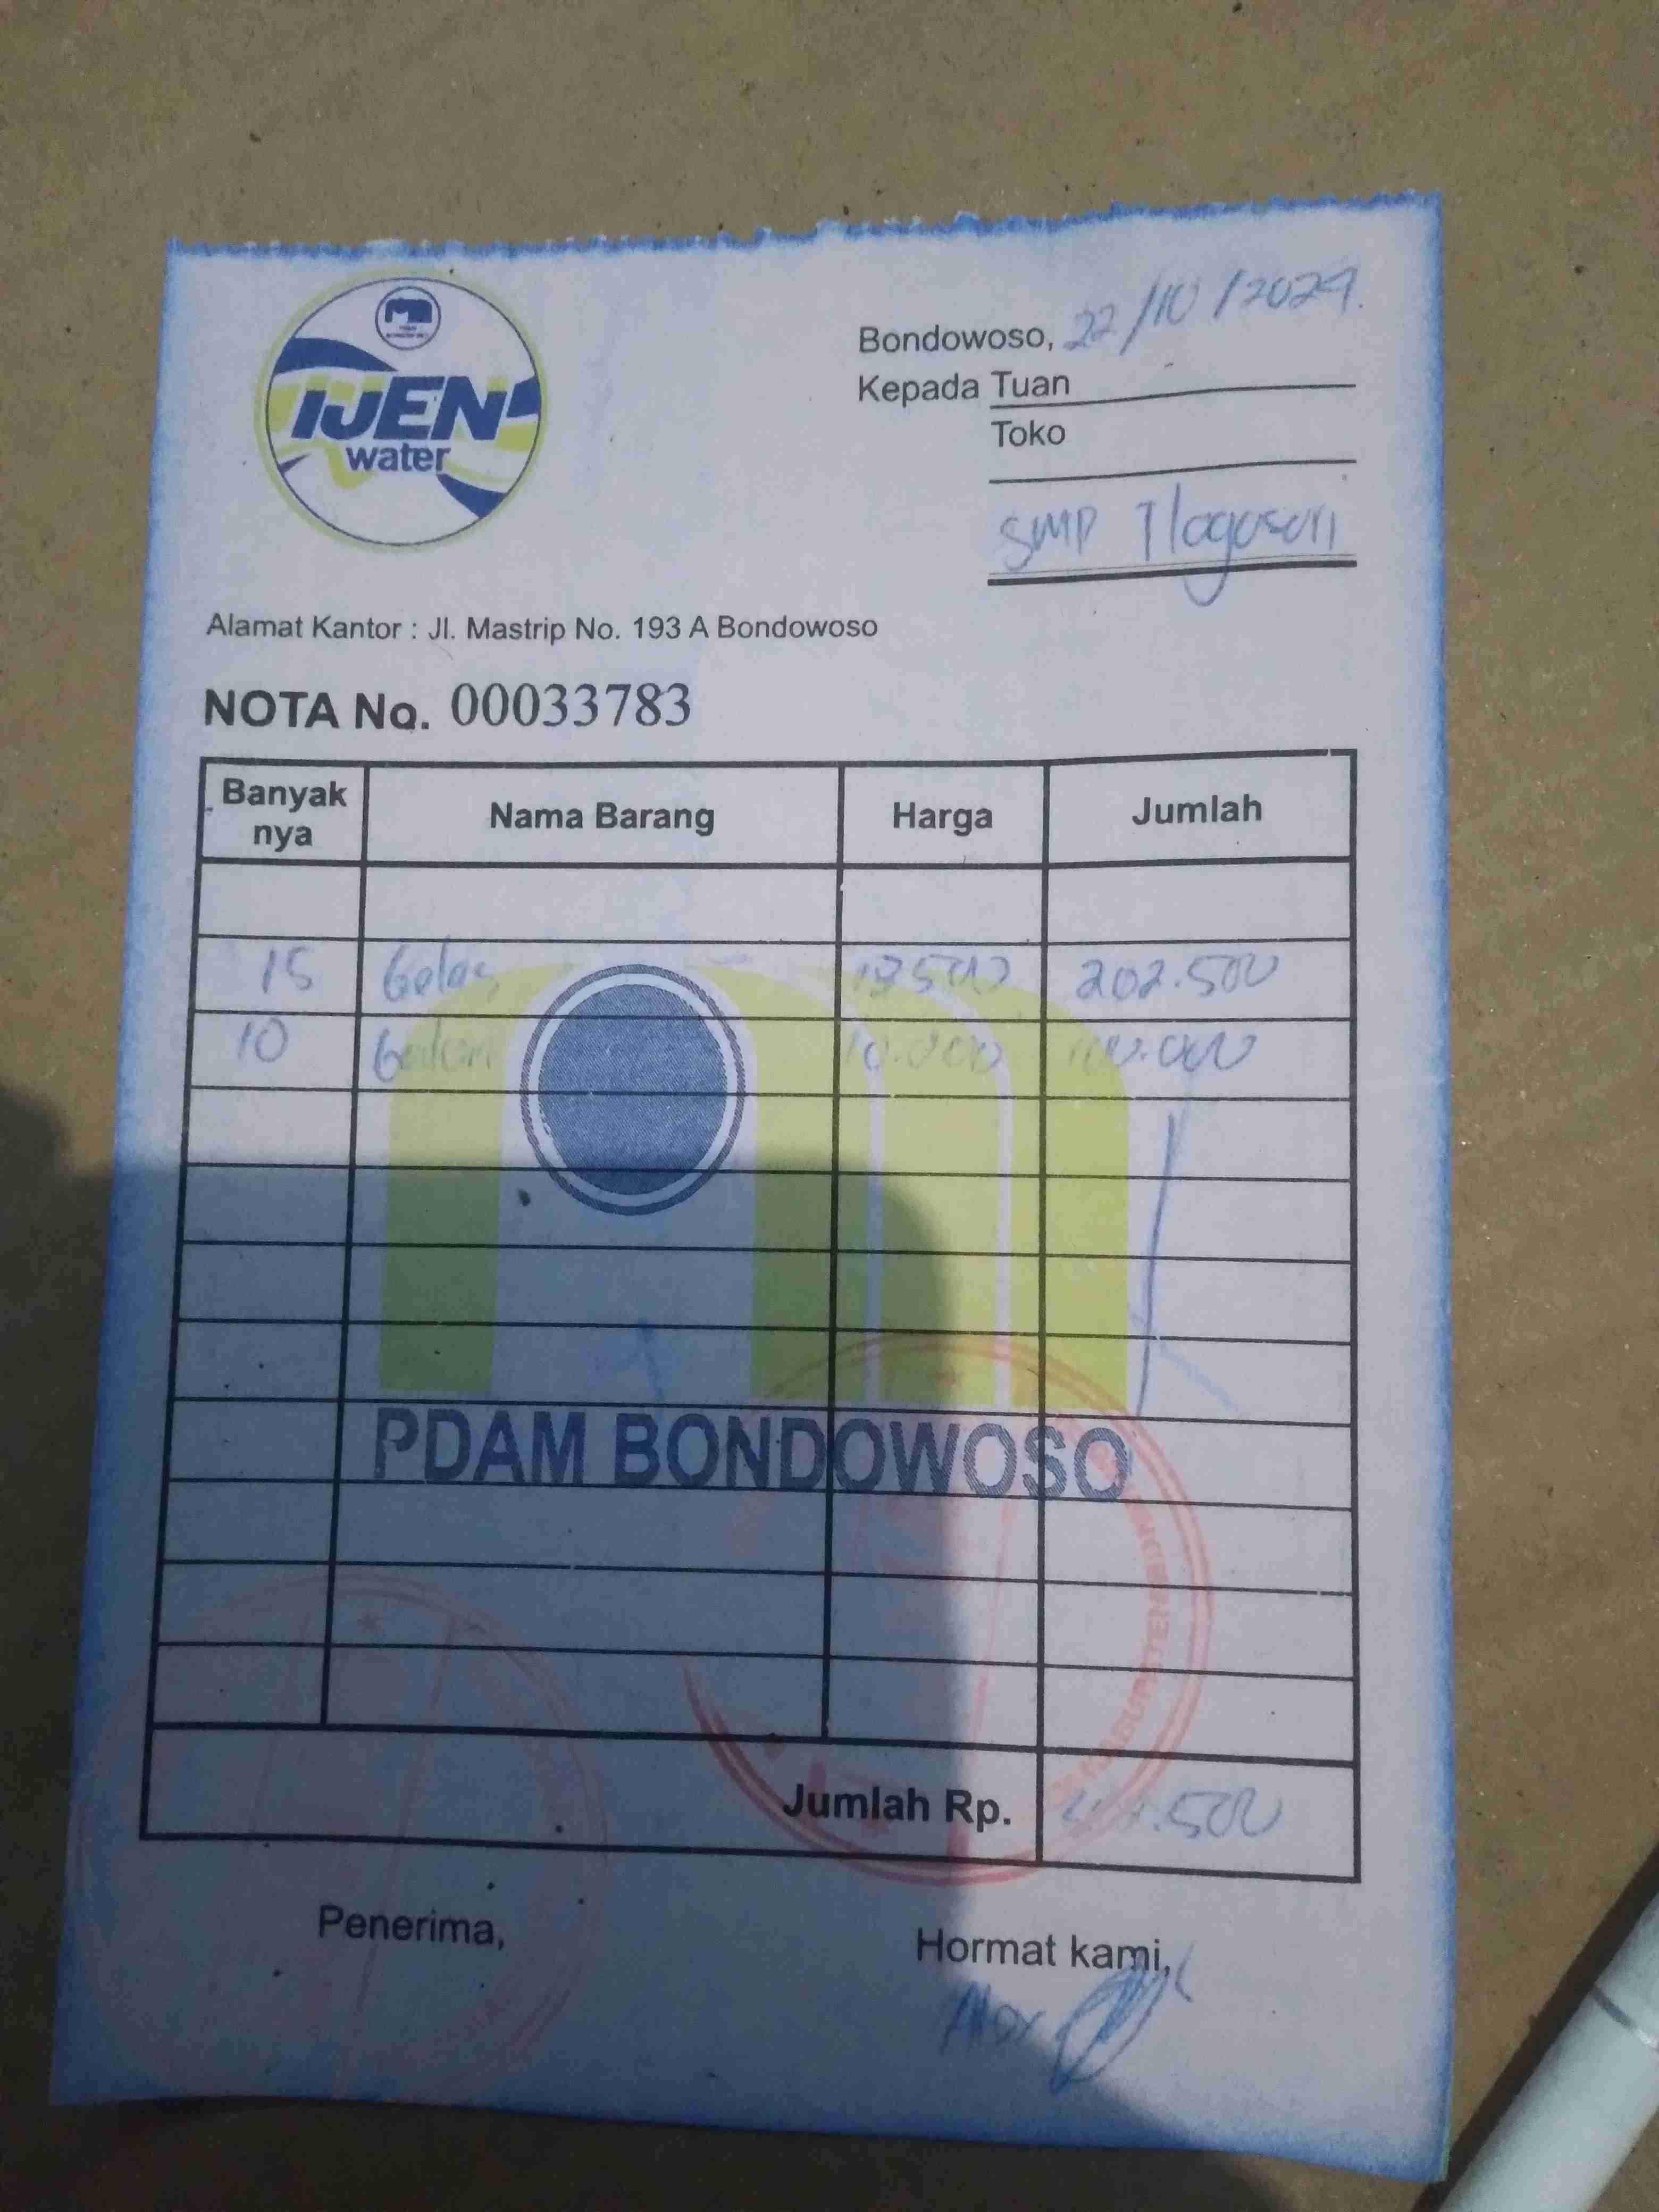 IJEN
water
Bondowoso, 22/10/2024.
Kepada Tuan
Toko
SMP Tlogosari
Alamat Kantor : Jl. Mastrip No. 193 A Bondowoso
NOTA No. 00033783
Banyak nya Nama Barang Harga Jumlah
15 Gelas 13500 202.500
10 Galon 10.000 100.000
PDAM BONDOWOSO
Jumlah Rp.
Penerima,
Hormat kami,